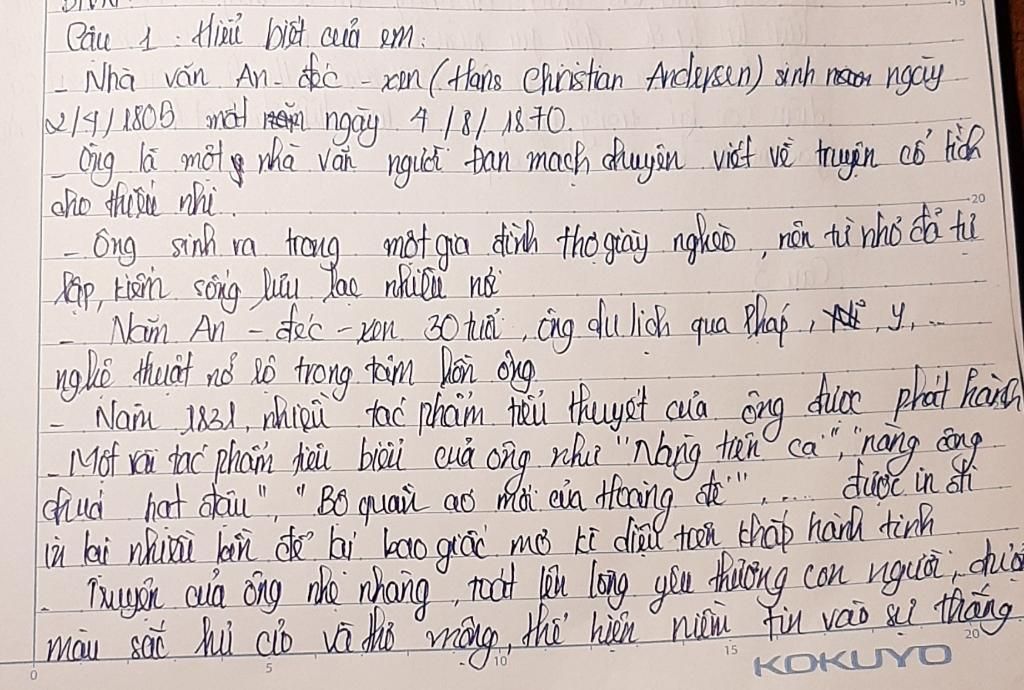 Câu 1: Hiểu biết của em:
- Nhà văn An-đéc-xen (Hans Christian Andersen) sinh ngày
2/4/1805 mất ngày 4/8/1870.
- Ông là một nhà văn người Đan mạch, chuyên viết về truyện cổ tích
cho thiếu nhi.
- Ông sinh ra trong một gia đình thợ giày nghèo, nên từ nhỏ đã tự
lập, kiếm sống lưu lạc nhiều nơi
- Năm An-đéc-xen 30 tuổi, ông du lịch qua Pháp, Y,...
nghệ thuật nở rộ trong tâm hồn ông
- Năm 1831, nhiều tác phẩm tiểu thuyết của ông được phát hành
- Một vài tác phẩm tiêu biểu của ông như "Nàng tiên cá", "nàng công
chúa hạt đậu", "Bộ quần áo mới của Hoàng đế", .... được in đi
in lại nhiều lần để lại bao giấc mơ kì diệu trên khắp hành tinh
- Truyện của ông nhẹ nhàng, toát lên lòng yêu thương con người,
màu sắc hư cấu và thơ mộng, thể hiện niềm tin vào sự thắng
15
20
0 5 10 15 20
KOKUYO